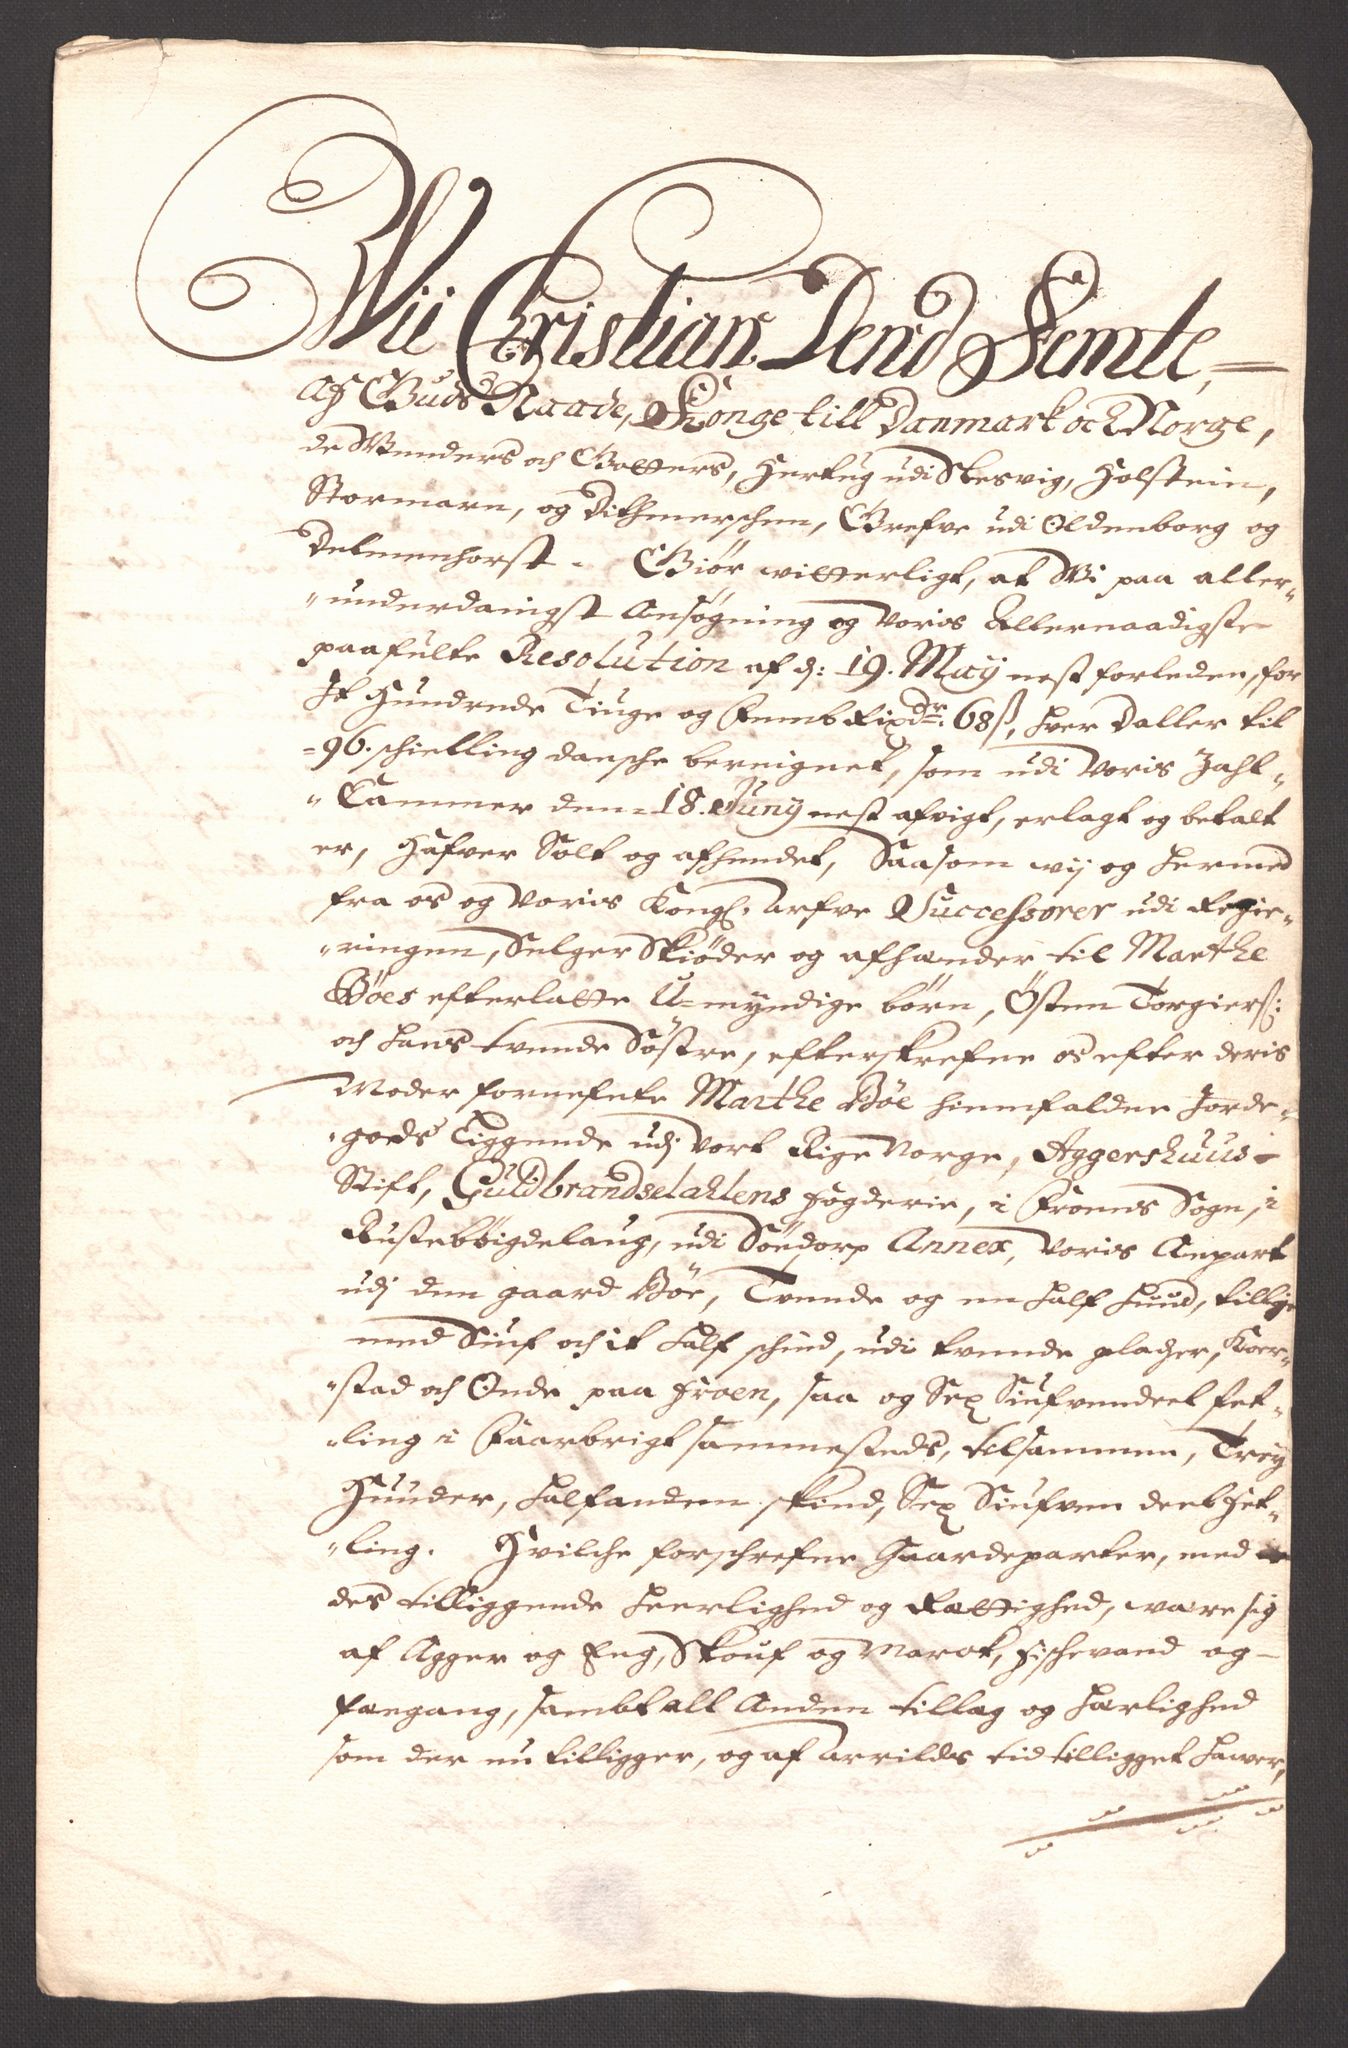 Wii Christian Dend Femte,
Af Guds Naade, Konge till Danmark och Norge,
de Wenders och Gotters, Hertug udi Slesvig, Holstein,
Stormarn, og Dithmerschen, Grefve udi Oldenborg og
Delmenhorst. Giör witterligt, at Wi paa aller-
underdanigst Ansøgning og Voris Allernaadigste
paafulte Resolution af d: 19. May nest forleden, for
It Hundrede Tiuge og Femb Rixdr. 68ß, hver Daller til
96. schielling dansche bereignet, som udi Voris Zahl-
Cammer den 18. Juny nest afvigt, erlagt og betalt
er, Hafver Solt og afhendet, Saasom wij og hermed
fra os og Voris Kongl. Arfve Successorer udi Regie-
ringen, Selger Skiøder og afhænder til Marthe
Böes efterlatte U-myndige börn, Østen Torgiers:
och hans tvende Söstre, efterskrefne os efter deris
Moder fornefnte Marthe Böe hiemfaldne Jorde-
gods Liggende udj Vort Rige Norge, Aggershuus
Stift, Guldbrandsdahlens fogderie, i Froens Sogn, i
Rustebögdelaug, udi Söedorp Annex, Voris Anpart
udj den gaard Böe, Tvende og en half huud, tillige
med Siuf och it half schind, udi tvende pladzer, Kor-
stad och Onde paa Froen, saa og Sex Siufvendeel fet-
ling i Faarbrigt sammesteds, tilsammen, Trey
Huuder, halfanden skind, Sex Siufven deel Fet-
ling. Hvilche forschrefne Gaardeparter, med
des tilliggende herlighed og Rættighed, være sig
af Agger og Eng, Skouf og Marck, fischevand og
fægang, sambt all Anden tillag og herlighed
som der nu tilligger, og af Arrilds tid tilligget hawer,